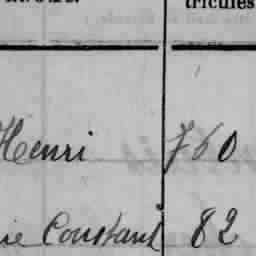 tricules
Henri 760
Constant 82